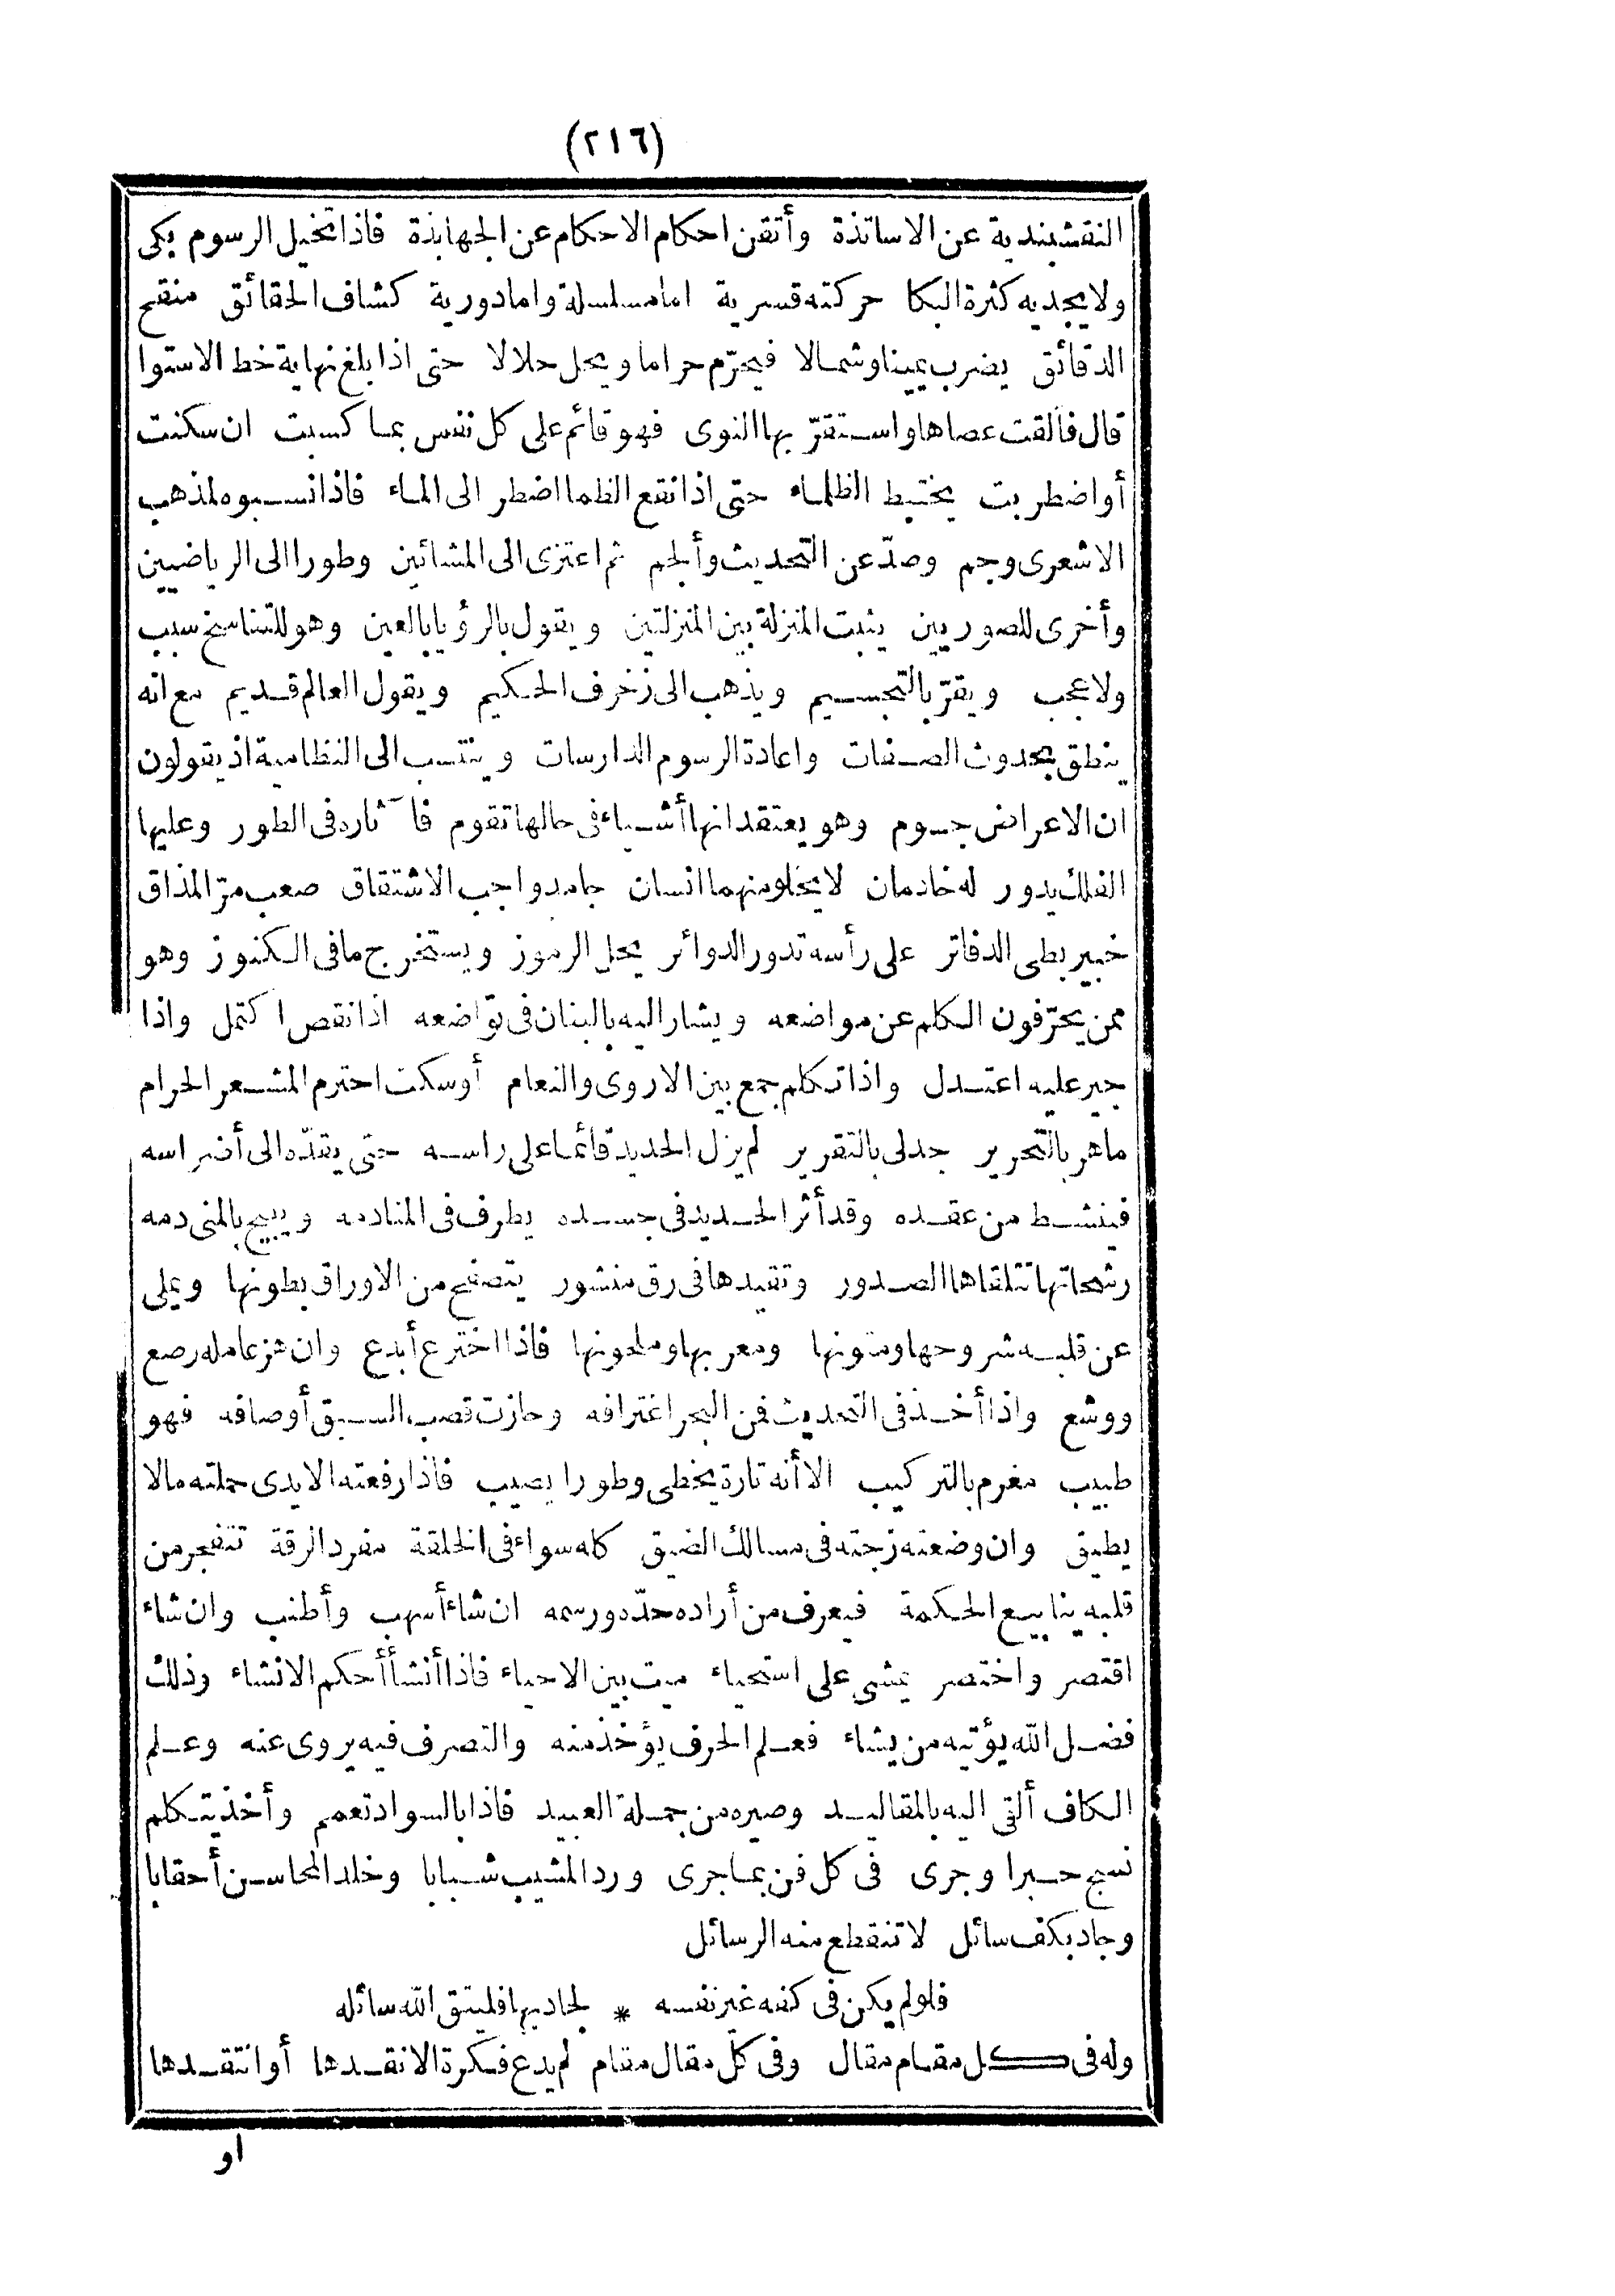 (٢١٦)
النقشبندية عن الاساتذة وأتقن احكام الاحكام عن الجهابذة فاذا تخيل الرسوم بكى
ولا يجديه كثرة البكا حركته قسرية اما مسلسلة واما دورية كشاف الحقائق منقح
الدقائق يضرب يمينا وشمالا فيحرّم حراما ويحل حلالا حتى اذا بلغ نهاية خط الاستوا
قال فألقت عصاها واستقرّ بها النوى فهو قائم على كل نفس بما كسبت ان سكنت
أو اضطربت يختبط الظلماء حتى اذا نقع الظما اضطر الى الماء فاذا نسبوه لمذهب
الاشعرى وجم وصدّ عن التحديث وألجم ثم اعتزى الى المشائين وطورا الى الرياضيين
وأخرى للصوريين يثبت المنزلة بين المنزلتين ويقول بالرؤيا بالعين وهو للتناسخ سبب
ولا عجب ويقرّ بالتجسيم ويذهب الى زخرف الحكيم ويقول العالم قديم مع انه
ينطق بحدوث الصفات واعادة الرسوم الدارسات وينتسب الى النظامية اذ يقولون
ان الاعراض جسوم وهو يعتقد انها أشياء فى حالها تقوم فآثاره فى الطور وعليها
الفلك يدور له خادمان لا يخلو منهما انسان جامد واجب الاشتقاق صعب مرّ المذاق
خبير بطى الدفاتر على رأسه تدور الدوائر يحل الرموز ويستخرج ما فى الكنوز وهو
ممن يحرّفون الكلم عن مواضعه ويشار اليه بالبنان فى تواضعه اذا نقص اكتمل واذا
جير عليه اعتدل واذا تكلم جمع بين الاروى والنعام أو سكت احترم المشعر الحرام
ماهر بالتحرير جدلى بالتقرير لم يزل الحديد قائما على راسه حتى يقدّه الى أضراسه
فينشط من عقده وقد أثر الحديد فى جسده يطرف فى المنادمه ويبيح بالمنى دمه
رشحاتها تتلقاها الصدور وتقيدها فى رق منشور يتصفح من الاوراق بطونها ويملى
عن قلبه شروحها ومتونها ومعربها وملحونها فاذا اخترع أبدع وان هز عامله رصع
ووشع واذا أخذ فى التحديث فمن البحر اغترافه وحازت قصب السبق أوصافه فهو
طبيب مغرم بالتركيب الا أنه تارة يخطى وطورا يصيب فاذا رفعته الايدى حملته مالا
يطيق وان وضعته زجته فى مسالك الضيق كله سواء فى الخلقة مفرد الرقة تتفجر من
قلبه ينابيع الحكمة فيعرف من أراده حدّه ورسمه ان شاء أسهب وأطنب وان شاء
اقتصر واختصر يمشى على استحياء ميت بين الاحياء فاذا أنشأ أحكم الانشاء وذلك
فضل الله يؤتيه من يشاء فعلم الحرف يؤخذ منه والتصرف فيه يروى عنه وعلم
الكاف ألقى اليه بالمقاليد وصيره من جملة العبيد فاذا بالسواد تعمم وأخذ يتكلم
نسج حبرا وجرى فى كل فن بما جرى ورد المشيب شبابا وخلد المحاسن أحقابا
وجاد بكف سائل لا تنقطع منه الرسائل
فلو لم يكن فى كفه غير نفسه * لجاد بها فليتق الله سائله
وله فى كل مقام مقال وفى كل مقال مقام لم يدع فكرة الا نقدها أو انتقدها
او